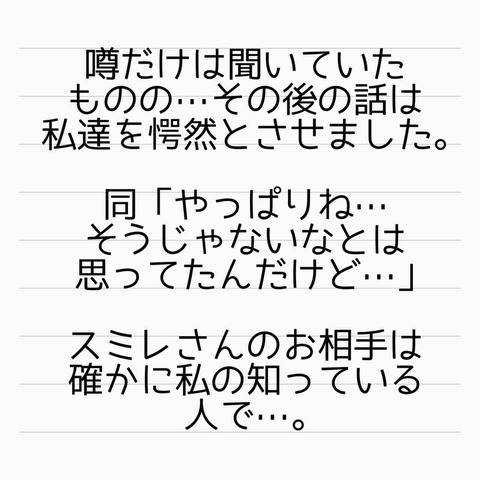 噂だけは聞いていた
ものの…その後の話は
私達を愕然とさせました。
同「やっぱりね…
そうじゃないなとは
思ってたんだけど…」
スミレさんのお相手は
確かに私の知っている
人で…。